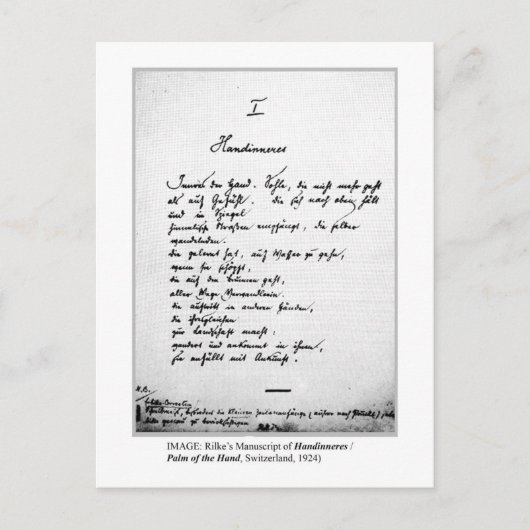 I
Handinneres
Innres der Hand. Sohle, die nicht mehr geht
als auf Gefühl. die sich nach oben hält
und in Spiegel
himmlische Straßen empfängt, die selber
wandelnden.
die gelernt hat, auf Wasser zu gehn,
wenn sie schöpft,
die auf den Brunnen geht,
aller Wege Verwandlerin.
die auftritt in anderen Händen,
die ihresgleichen
zur Landschaft macht:
wandert und ankommt in ihnen,
sie anfüllt mit Ankunft.
N.B.
die kleinen Zeilenanfänge
genau zu berücksichtigen
IMAGE: Rilke's Manuscript of Handinneres /
Palm of the Hand, Switzerland, 1924)